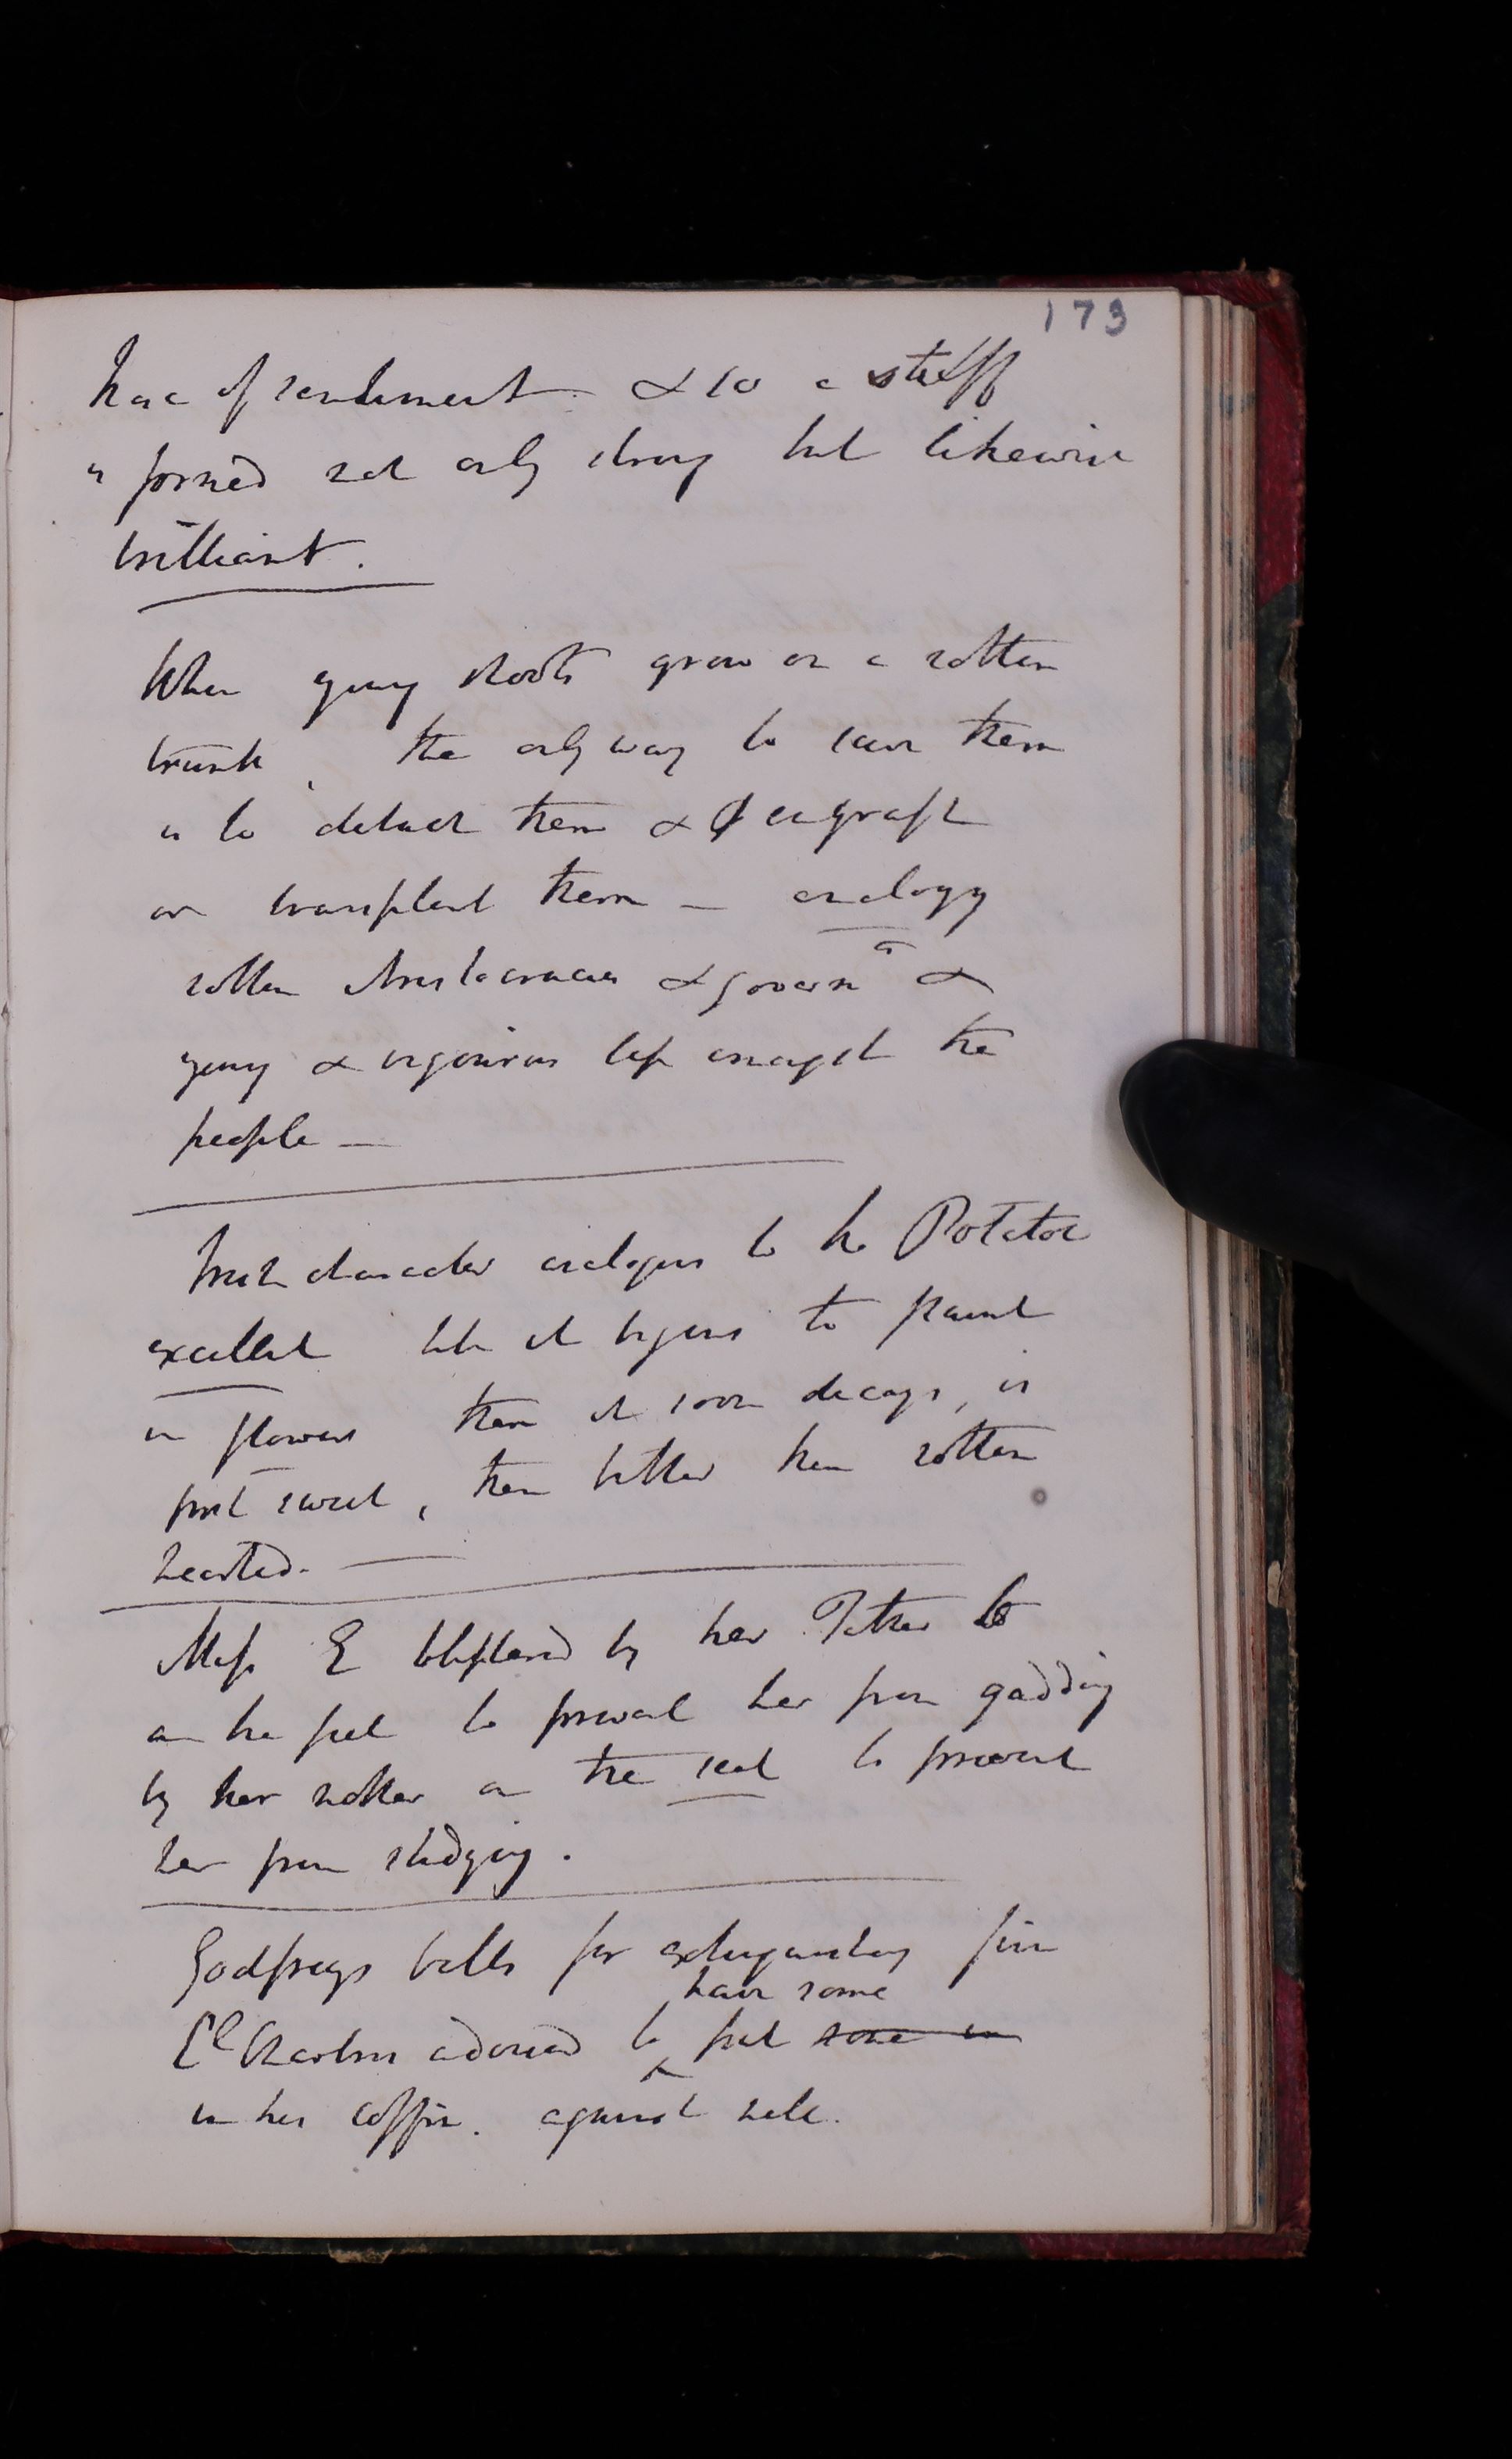 173
that of sentiment & so a stuff
is formed not only strong but likewise
brilliant.
When young shoots grow on a rotten
trunk, the only way to save them
is to detach them & engraft
or transplant them — analogy
rotten Aristocracies & govern &
young & vigourous life amongst the
people —
Irish character analogous to the Potatoe
excellent when it begins to flaunt
in flowers then it soon decays, is
first sweet, then bitter then rotten
hearted. —
Miss E blistered by her Father
on the feet to prevent her from gadding
by her mother on the seat to prevent
her from studying.
Godfreys balls for extinguishing fire
advised to have some put some in
in her coffin. against hell.